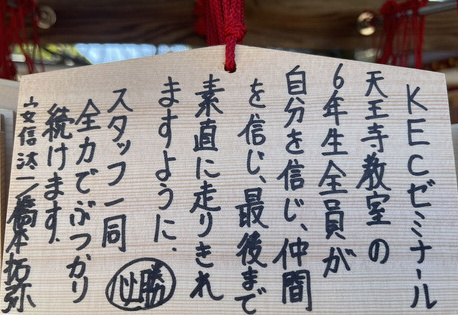 KECゼミナール
天王寺教室の
6年生全員が
自分を信じ、仲間
を信じ、最後まで
素直に走りきれ
ますように、
スタッフ一同
必勝
全力でぶつかり
続けます.
橋本拓弥